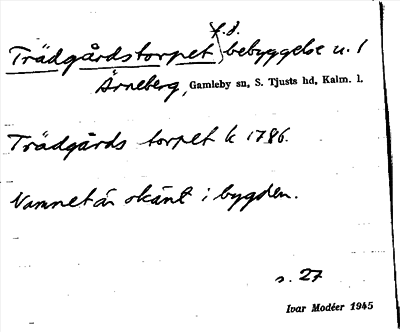 Trädgårdstorpet, f.d. bebyggelse u. l
Årneberg, Gamleby sn, S. Tjusts hd, Kalm. l.
Trädgårds torpet k 1786.
Namnet är okänt i bygden.
s. 27
Ivar Modéer 1945